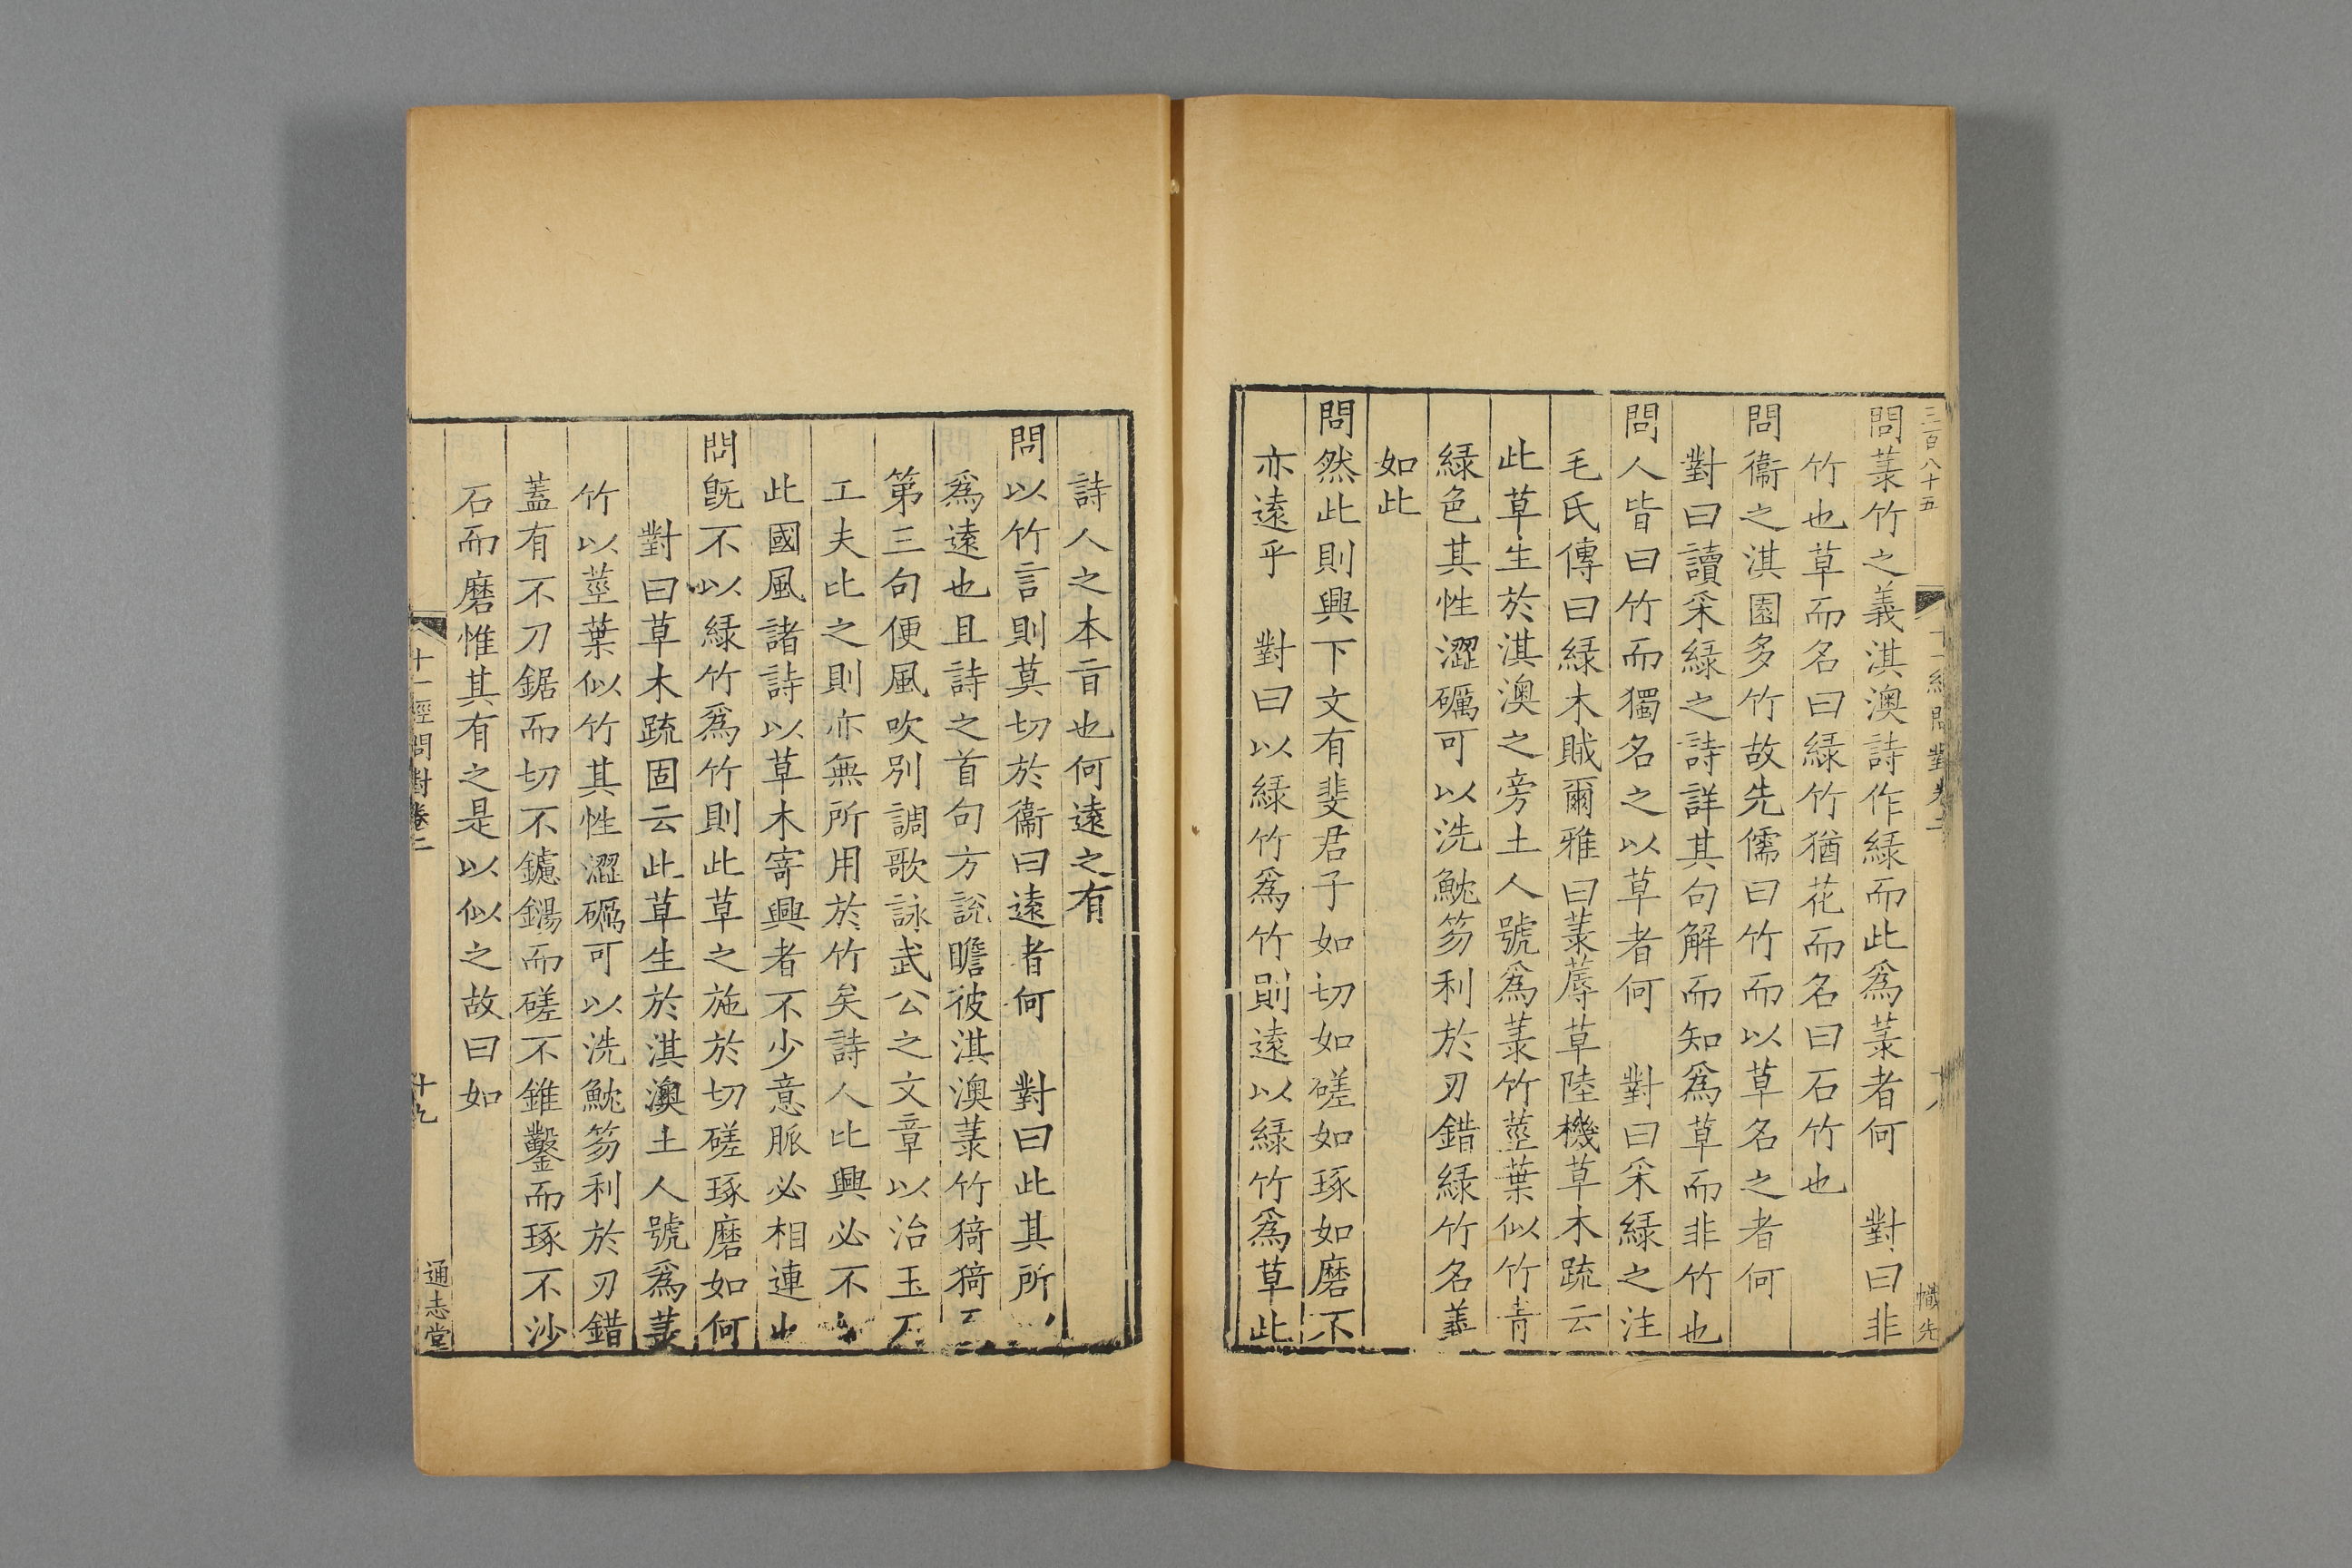 三百八十五
問菉竹之義淇澳詩作緑而此爲菉者何　對曰非
竹也草而名曰緑竹猶花而名曰石竹也
問衞之淇園多竹故先儒曰竹而以草名之者何
對曰讀采緑之詩詳其句解而知爲草而非竹也
問人皆曰竹而獨名之以草者何　對曰采緑之注
毛氏傳曰緑木賊爾雅曰菉蓐草陸機草木疏云
此草生於淇澳之旁土人號爲菉竹莖葉似竹青
緑色其性澀礪可以洗魫笏利於刃錯緑竹名蓋
如此
問然此則興下文有斐君子如切如磋如琢如磨不
亦遠乎　對曰以緑竹爲竹則遠以緑竹爲草此
詩人之本旨也何遠之有
問以竹言則莫切於衞曰遠者何　對曰此其所
爲遠也且詩之首句方說瞻彼淇澳菉竹猗猗
第三句便風吹別調歌詠武公之文章以治玉
工夫比之則亦無所用於竹矣詩人比興必不
此國風諸詩以草木寄興者不少意脈必相連
問旣不以緑竹爲竹則此草之施於切磋琢磨如何
對曰草木疏固云此草生於淇澳土人號爲菉
竹以莖葉似竹其性澀礪可以洗魫笏利於刃錯
蓋有不刀鋸而切不鑢鐋而磋不錐鑿而琢不沙
石而磨惟其有之是以似之故曰如
十一經問對卷二
十九
通志堂